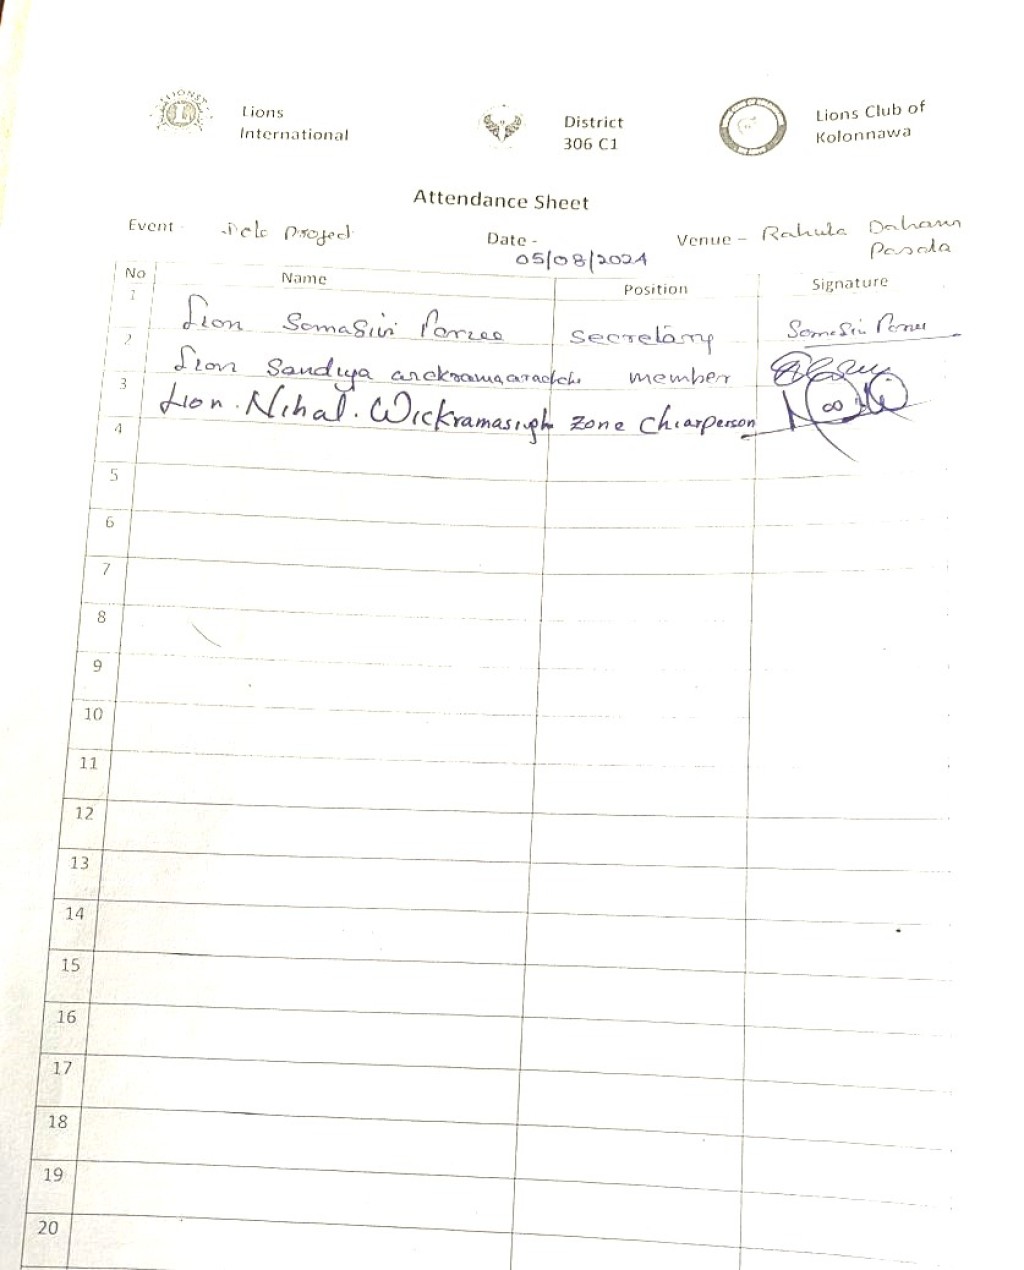 LIONS
L
Lions
International
District
306 C1
Lions Club of
Kolonnawa
Attendance Sheet
Event - Project
Date -
05/08/2024
Venue - Rahula Daham
Pasala
No Name Position Signature
1 Lion Somasiri Secretary Somasiri
2 Lion Sandiya member
3 Lion. Nihal. Wickramasigh zone Chiarperson
4
5
6
7
8
9
10
11
12
13
14
15
16
17
18
19
20